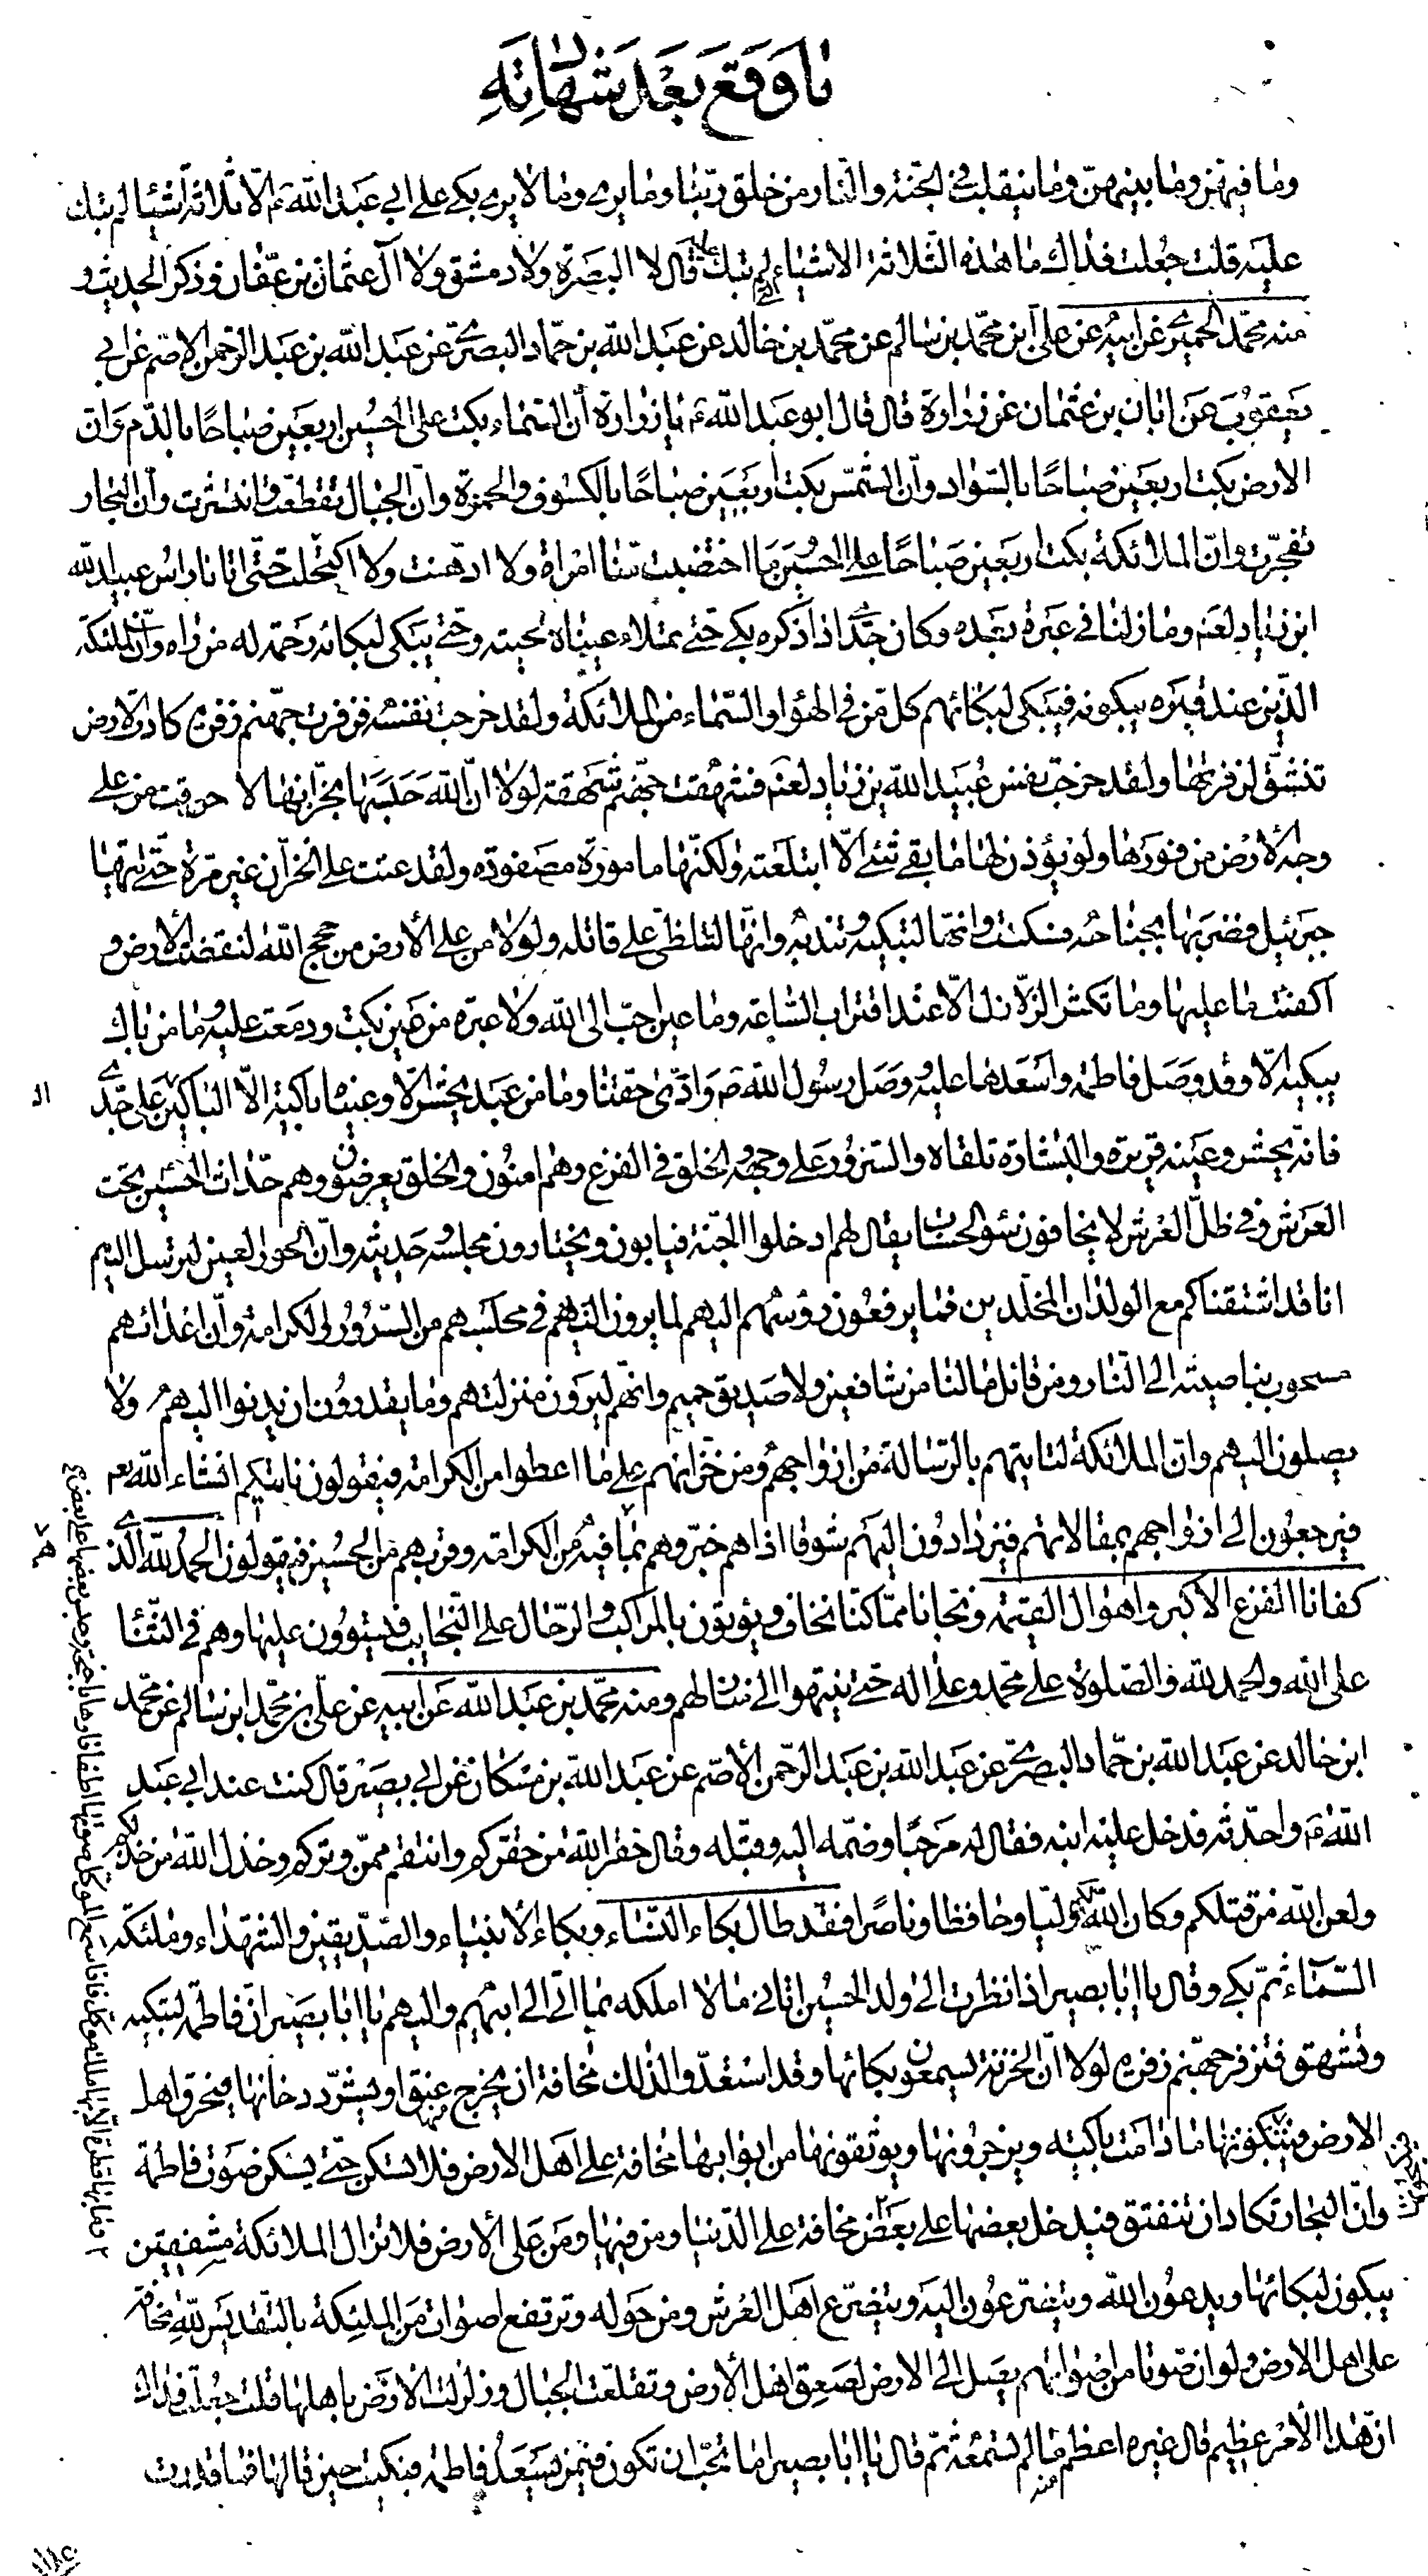 ما وقع بعد شهادته
وما فيهن وما بينهن وما ينقلب في الجنة والنار من خلق ربنا وما يرى وما لا يرى بكى على ابي عبد الله ع الا ثلاثة اشياء لم تبك
عليه قلت جعلت فداك ما هذه الثلاثة الاشياء لم تبك عليه قال لا البصرة ولا دمشق ولا آل عثمان بن عفان وذكر الحديث و
منه محمد الحميري عن ابيه عن علي ابن محمد بن سالم عن محمد بن خالد عن عبد الله بن حماد البصري عن عبد الله بن عبد الرحمن الاصم عن ابي
يعقوب عن ابان بن عثمان عن زرارة قال قال ابو عبد الله ع يا زرارة ان السماء بكت على الحسين اربعين صباحا بالدم وان
الارض بكت اربعين صباحا بالسواد وان الشمس بكت اربعين صباحا بالكسوف والحمرة وان الجبال تقطعت وانتثرت وان البحار
تفجرت وان الملائكة بكت اربعين صباحا على الحسين وما اختضبت منا امراة ولا ادهنت ولا اكتحلت حتى اتانا راس عبيد الله
ابن زياد لعنه وما زلنا في عبرة بعده وكان جدي اذا ذكره بكى حتى تملاء عيناه لحيته وحتى يبكي لبكائه رحمة له من راه وان الملئكة
الذين عند قبره يبكون فيبكي لبكائهم كل من في الهواء والسماء من الملائكة ولقد خرجت نفسه فزفرت جهنم زفرة كادت الارض
تنشق لزفرتها ولقد خرجت نفس عبيد الله بن زياد لعنه فشهقت جهنم شهقة لولا ان الله حبسها بخزانها لا حرقت من على
وجه الارض من فورها ولو يؤذن لها ما بقي شئ الا ابتلعته ولكنها مامورة مصفودة ولقد عتت على الخزان غير مرة حتى اتيها
جبرئيل فضربها بجناحه فسكنت وانها لتبكيه وتندبه وانها لتتلظى على قاتله ولولا من على الأرض من حجج الله لنقضت الأرض و
اكفئت ما عليها وما تكثر الزلازل الا عند اقتراب الساعة وما عين احب الى الله ولا عبرة من عين بكت ودمعت عليه وما من باك
يبكيه الا وقد وصل فاطمة واسعدها عليه ووصل رسول الله ص وادى حقنا وما من عبد يحشر الا وعيناه باكية الا الباكين على جدي
فانه يحشر وعينه قريرة والبشارة تلقاه والسرور على وجهه والخلق في الفزع وهم امنون والخلق يعرضون وهم حداث الحسين تحت
العرش وفي ظل العرش لا يخافون سوء الحساب يقال لهم ادخلوا الجنة فيابون ويختارون مجلسه وحديثه وان الحور العين لترسل اليهم
انا قد اشتقناكم مع الولدان المخلدين فما يرفعون رؤسهم اليهم لما يرون اليهم في مجلسهم من السرور والكرامة وان اعدائهم
مسحوب بناصيته الى النار ومن قائل ما لنا من شافعين ولا صديق حميم وانهم ليرون منزلتهم وما يقدرون ان يدنوا اليهم ولا
يصلون اليهم وان الملائكة لتاتيهم بالرسالة من ازواجهم ومن خزانهم على ما اعطوا من الكرامة فيقولون ناتيكم انشاء الله
فيرجعون الى ازواجهم بمقالاتهم فيزدادون اليهم شوقا اذا هم خبروهم بما فيه من الكرامة وقربهم من الحسين فيقولون الحمد لله الذي
كفانا الفزع الاكبر واهوال القيمة ونجانا مما كنا نخاف ويؤتون بالمراكب والرحال على النجايب فيستوون عليها وهم في الثناء
على الله والحمد لله والصلوة على محمد وعلى اله حتى ينتهوا الى منازلهم ومنه محمد بن عبد الله عن ابيه عن علي بن محمد ابن سالم عن محمد
ابن خالد عن عبد الله بن حماد البصري عن عبد الله بن عبد الرحمن الأصم عن عبد الله بن مسكان عن ابي بصير قال كنت عند ابي عبد
الله ع واحدثه فدخل عليه ابنه فقال له مرحبا وضمه اليه وقبله وقال حقر الله من حقركم وانتقم ممن وتركم وخذل الله من خذلكم
ولعن الله من قتلكم وكان الله لكم وليا وحافظا وناصرا فقد طال بكاء النساء وبكاء الأنبياء والصديقين والشهداء وملئكة
السماء ثم بكى وقال يا ابا بصير اذا نظرت الى ولد الحسين اتاني ما لا املكه بما اتى الى ابيهم واليهم يا ابا بصير ان فاطمة لتبكيه
وتشهق فتزفر جهنم زفرة لولا ان الخزنة يسمعون بكائها وقد استعدوا لذلك مخافة ان يخرج منها عنق او يشرد دخانها فيحرق اهل
الارض فيكبحونها ما دامت باكية ويزجرونها ويوثقون من ابوابها مخافة على اهل الارض فلا تسكن حتى يسكن صوت فاطمة
وان البحار تكاد ان تنفتق فيدخل بعضها على بعض مخافة على الدنيا ومن فيها ومن على الأرض فلا تزال الملائكة مشفقين
يبكون لبكائها ويدعون الله ويتضرعون اليه ويتضرع اهل العرش ومن حوله وترتفع اصوات من الملئكة بالتقديس لله مخافة
على اهل الارض ولو ان صوتا من اصواتهم يصل الى الارض لصعق اهل الأرض وتقلعت الجبال وزلزلت الارض باهلها قلت جعلت فداك
ان هذا الأمر عظيم قال غيره اعظم منه ما لم تسمعه ثم قال يا ابا بصير اما تحب ان تكون فيمن يسعد فاطمة فبكيت حين قالها فما قدرت